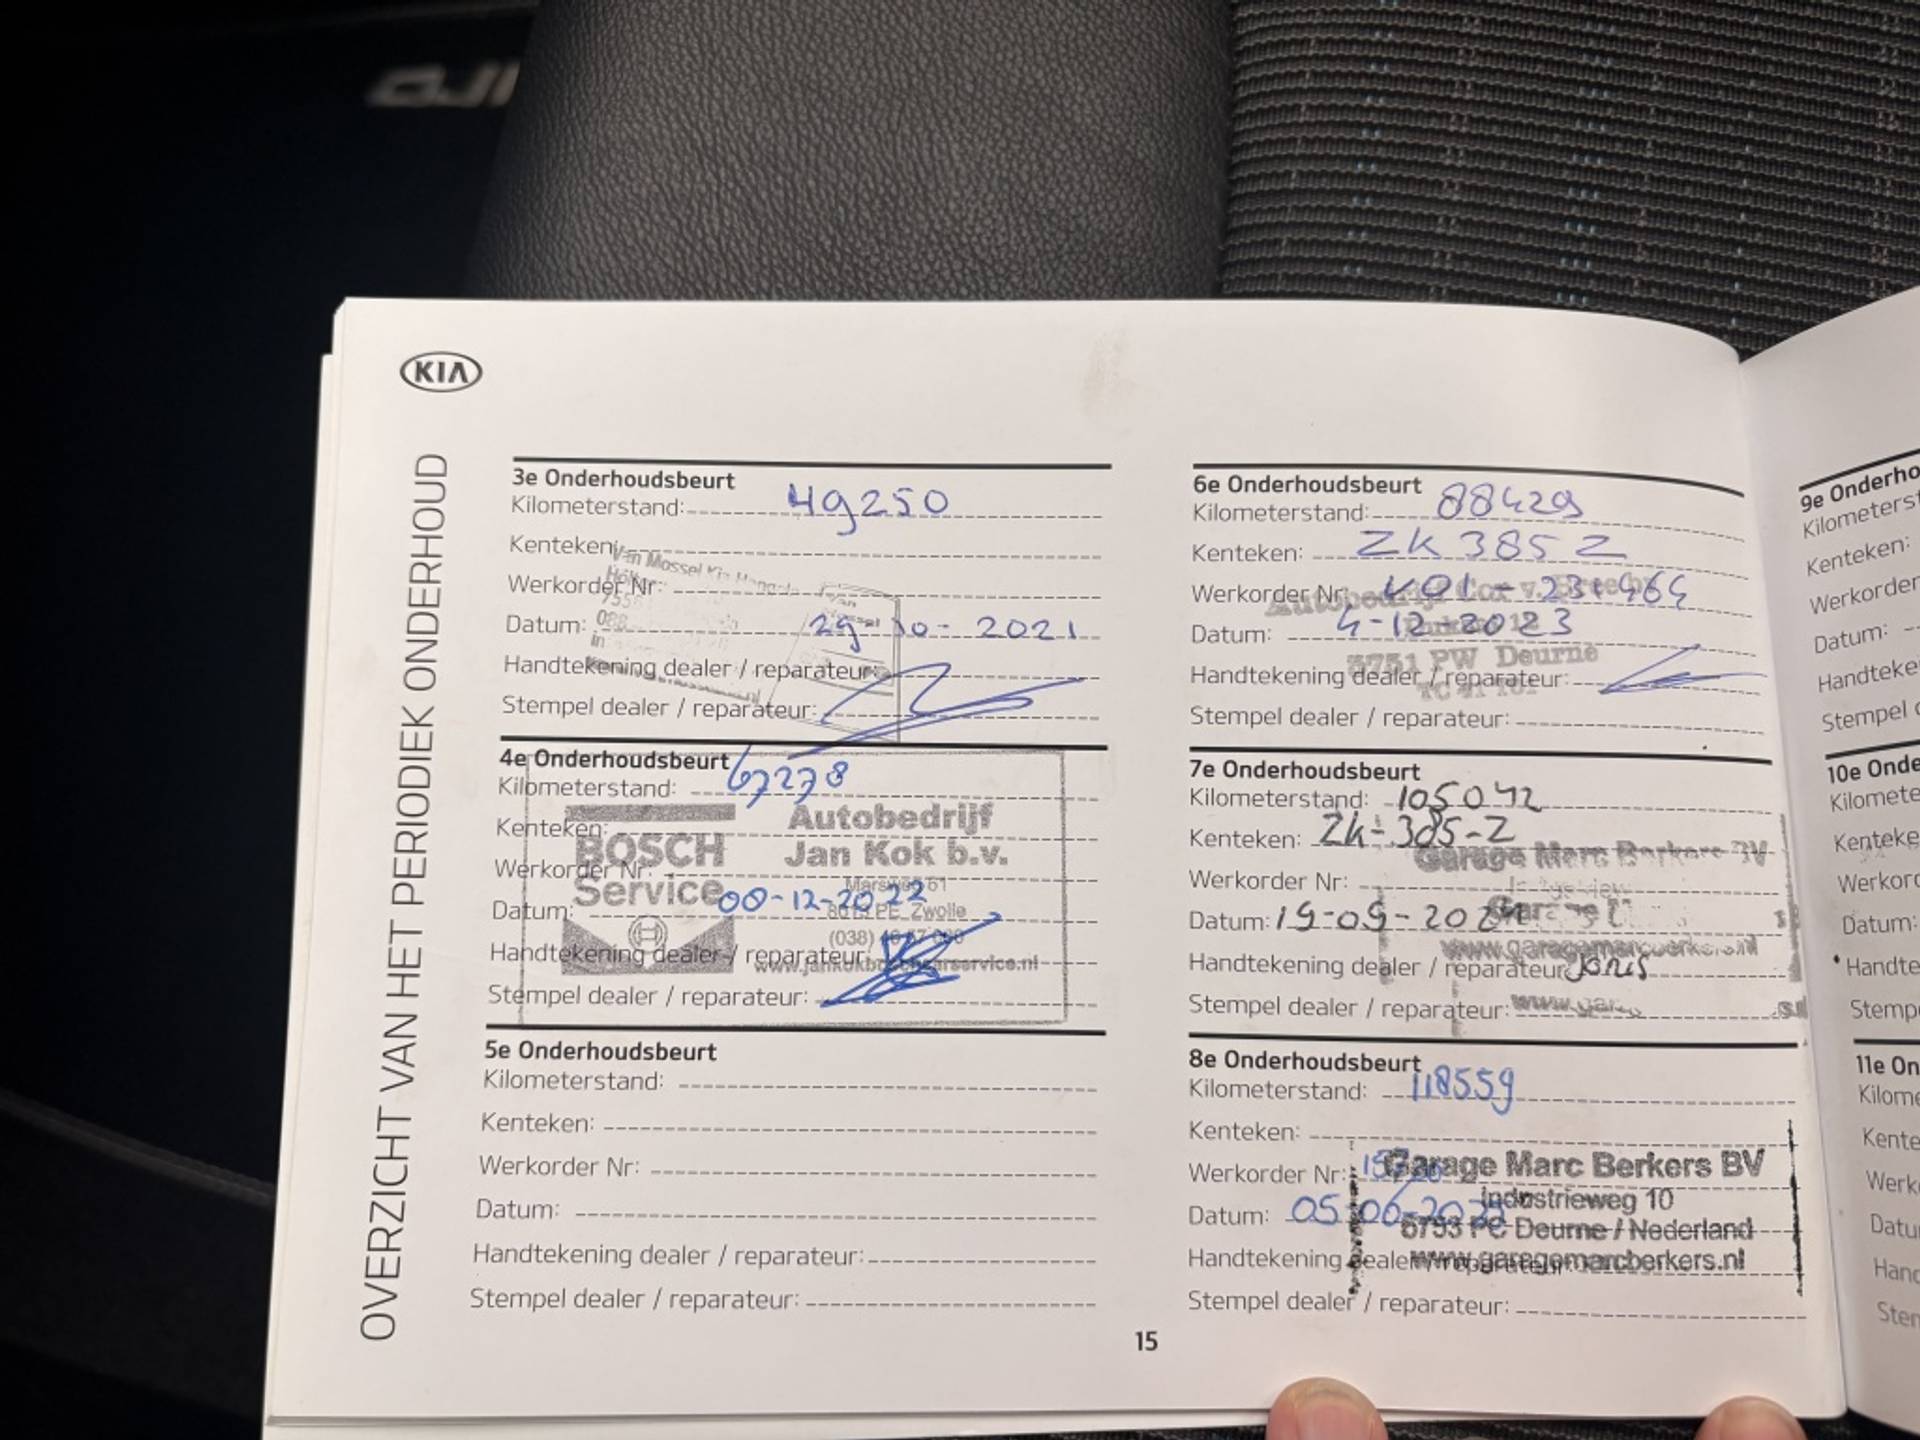 KIA
OVERZICHT VAN HET PERIODIEK ONDERHOUD
3e Onderhoudsbeurt
Kilometerstand: 49250
Kenteken:
Van Mossel Kia
Werkorder Nr:
Datum: 29 10 - 2021
Handtekening dealer / reparateur:
Stempel dealer / reparateur:
4e Onderhoudsbeurt
Kilometerstand: 67278
Kenteken:
Werkorder Nr:
Datum: 08-12-2022
Handtekening dealer / reparateur:
Stempel dealer / reparateur:
BOSCH
Service
Autobedrijf
Jan Kok b.v.
Marsweg 61
PE Zwolle
(038)
5e Onderhoudsbeurt
Kilometerstand:
Kenteken:
Werkorder Nr:
Datum:
Handtekening dealer / reparateur:
Stempel dealer / reparateur:
6e Onderhoudsbeurt
Kilometerstand: 88429
Kenteken: ZK 385 Z
Werkorder Nr:
Autobedrijf Cox
Datum: 4-12-2023
5751 PW Deurne
Handtekening dealer / reparateur:
Stempel dealer / reparateur:
7e Onderhoudsbeurt
Kilometerstand: 105042
Kenteken: ZK-385-Z
Garage Marc Berkers BV
Werkorder Nr:
Datum: 19-09-2024
www.garagemarcberkers.nl
Handtekening dealer / reparateur: Joris
Stempel dealer / reparateur:
8e Onderhoudsbeurt
Kilometerstand: 118559
Kenteken:
Werkorder Nr:
Datum: 05-06-2025
Handtekening dealer / reparateur:
Stempel dealer / reparateur:
Garage Marc Berkers BV
Industrieweg 10
5753 PC Deurne / Nederland
www.garagemarcberkers.nl
15
9e Onderho
Kilometerst
Kenteken:
Werkorder
Datum:
Handteke
Stempel d
10e Onde
Kilomete
Kenteke
Werkord
Datum:
Handte
Stemp
11e On
Kilome
Kente
Werk
Datu
Hand
Sten